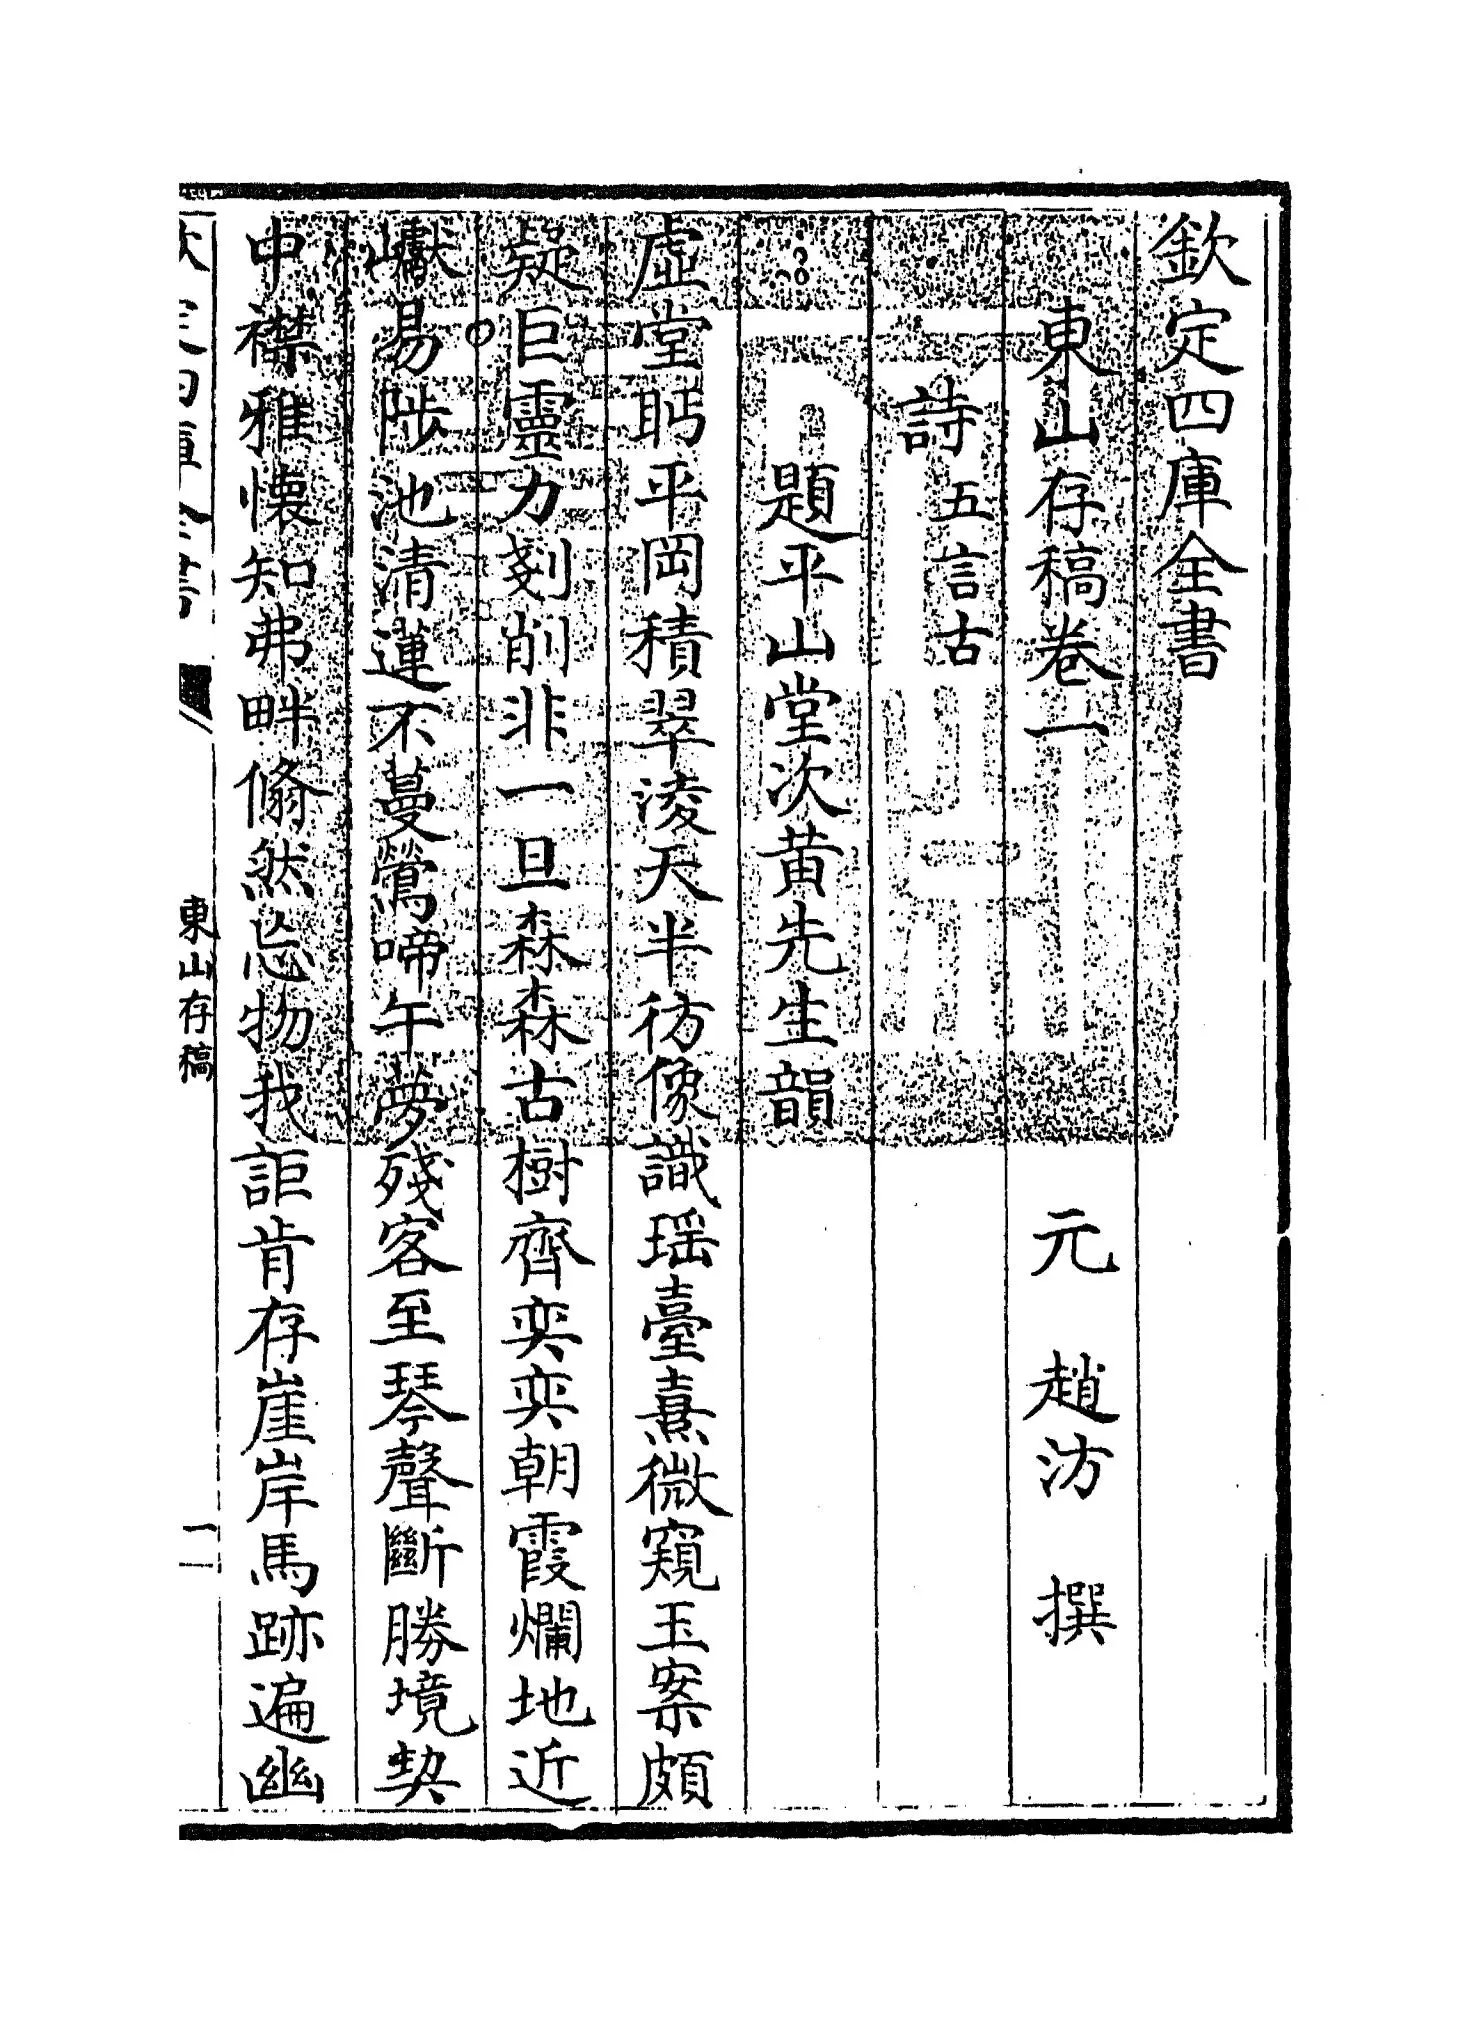 欽定四庫全書
東山存稿卷一 元 趙汸 撰
詩 五言古
題平山堂次黄先生韻
虛堂眄平岡積翠淩天半彷像識瑶臺熹微窺玉案頗
疑巨靈力剗削非一旦森森古樹齊奕奕朝霞爛地近
巘易陟池清蓮不蔓鶯啼午夢殘客至琴聲斷勝境契
中襟雅懷知弗畔翛然忘物我詎肯存崖岸馬跡遍幽
東山存稿 一